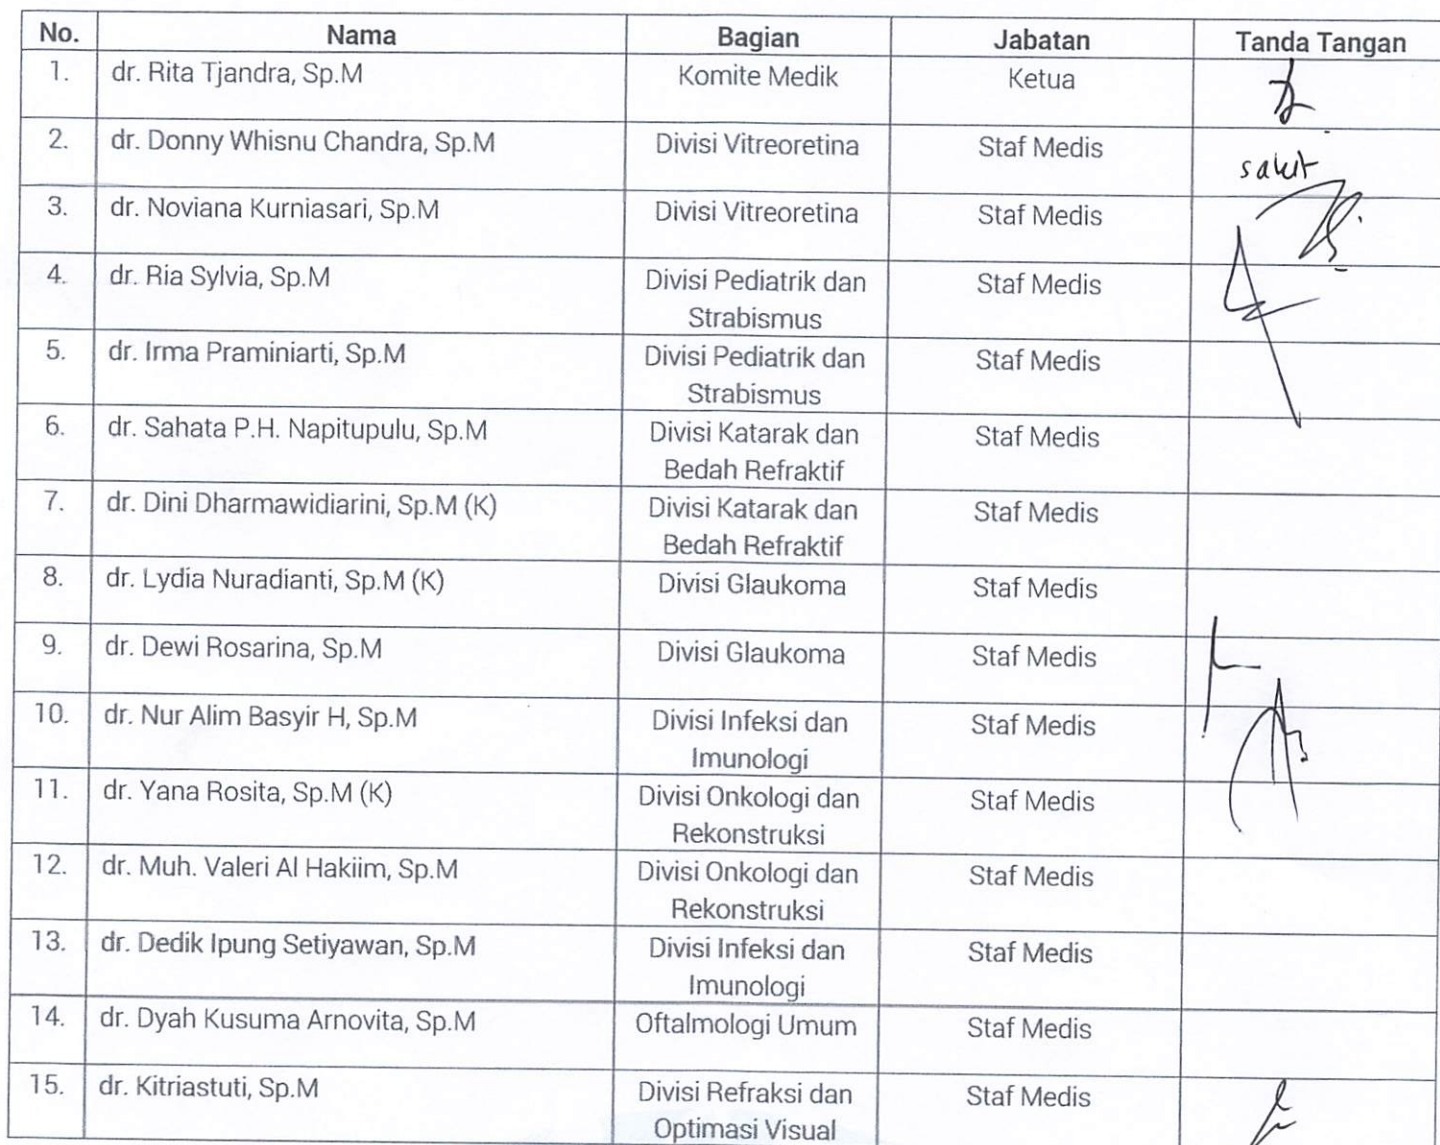 No. Nama Bagian Jabatan Tanda Tangan
1. dr. Rita Tjandra, Sp.M Komite Medik Ketua
2. dr. Donny Whisnu Chandra, Sp.M Divisi Vitreoretina Staf Medis sakit
3. dr. Noviana Kurniasari, Sp.M Divisi Vitreoretina Staf Medis
4. dr. Ria Sylvia, Sp.M Divisi Pediatrik dan Staf Medis
Strabismus
5. dr. Irma Praminiarti, Sp.M Divisi Pediatrik dan Staf Medis
Strabismus
6. dr. Sahata P.H. Napitupulu, Sp.M Divisi Katarak dan Staf Medis
Bedah Refraktif
7. dr. Dini Dharmawidiarini, Sp.M (K) Divisi Katarak dan Staf Medis
Bedah Refraktif
8. dr. Lydia Nuradianti, Sp.M (K) Divisi Glaukoma Staf Medis
9. dr. Dewi Rosarina, Sp.M Divisi Glaukoma Staf Medis
10. dr. Nur Alim Basyir H, Sp.M Divisi Infeksi dan Staf Medis
Imunologi
11. dr. Yana Rosita, Sp.M (K) Divisi Onkologi dan Staf Medis
Rekonstruksi
12. dr. Muh. Valeri Al Hakiim, Sp.M Divisi Onkologi dan Staf Medis
Rekonstruksi
13. dr. Dedik Ipung Setiyawan, Sp.M Divisi Infeksi dan Staf Medis
Imunologi
14. dr. Dyah Kusuma Arnovita, Sp.M Oftalmologi Umum Staf Medis
15. dr. Kitriastuti, Sp.M Divisi Refraksi dan Staf Medis
Optimasi Visual